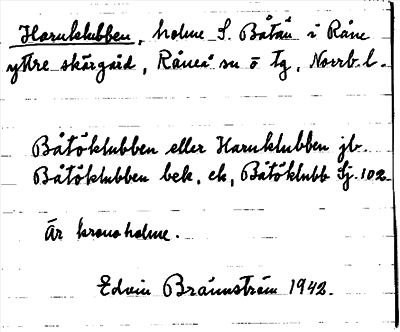 Harnklubben, holme S. Båtön i Råne
yttre skärgård, Råneå sn o tg, Norrb. l.
Båtöklubben eller Harnklubben jb.
Båtöklubben bek, ek, Båtöklubb Sj. 102
Är kronoholme.
Edvin Brännström 1942.